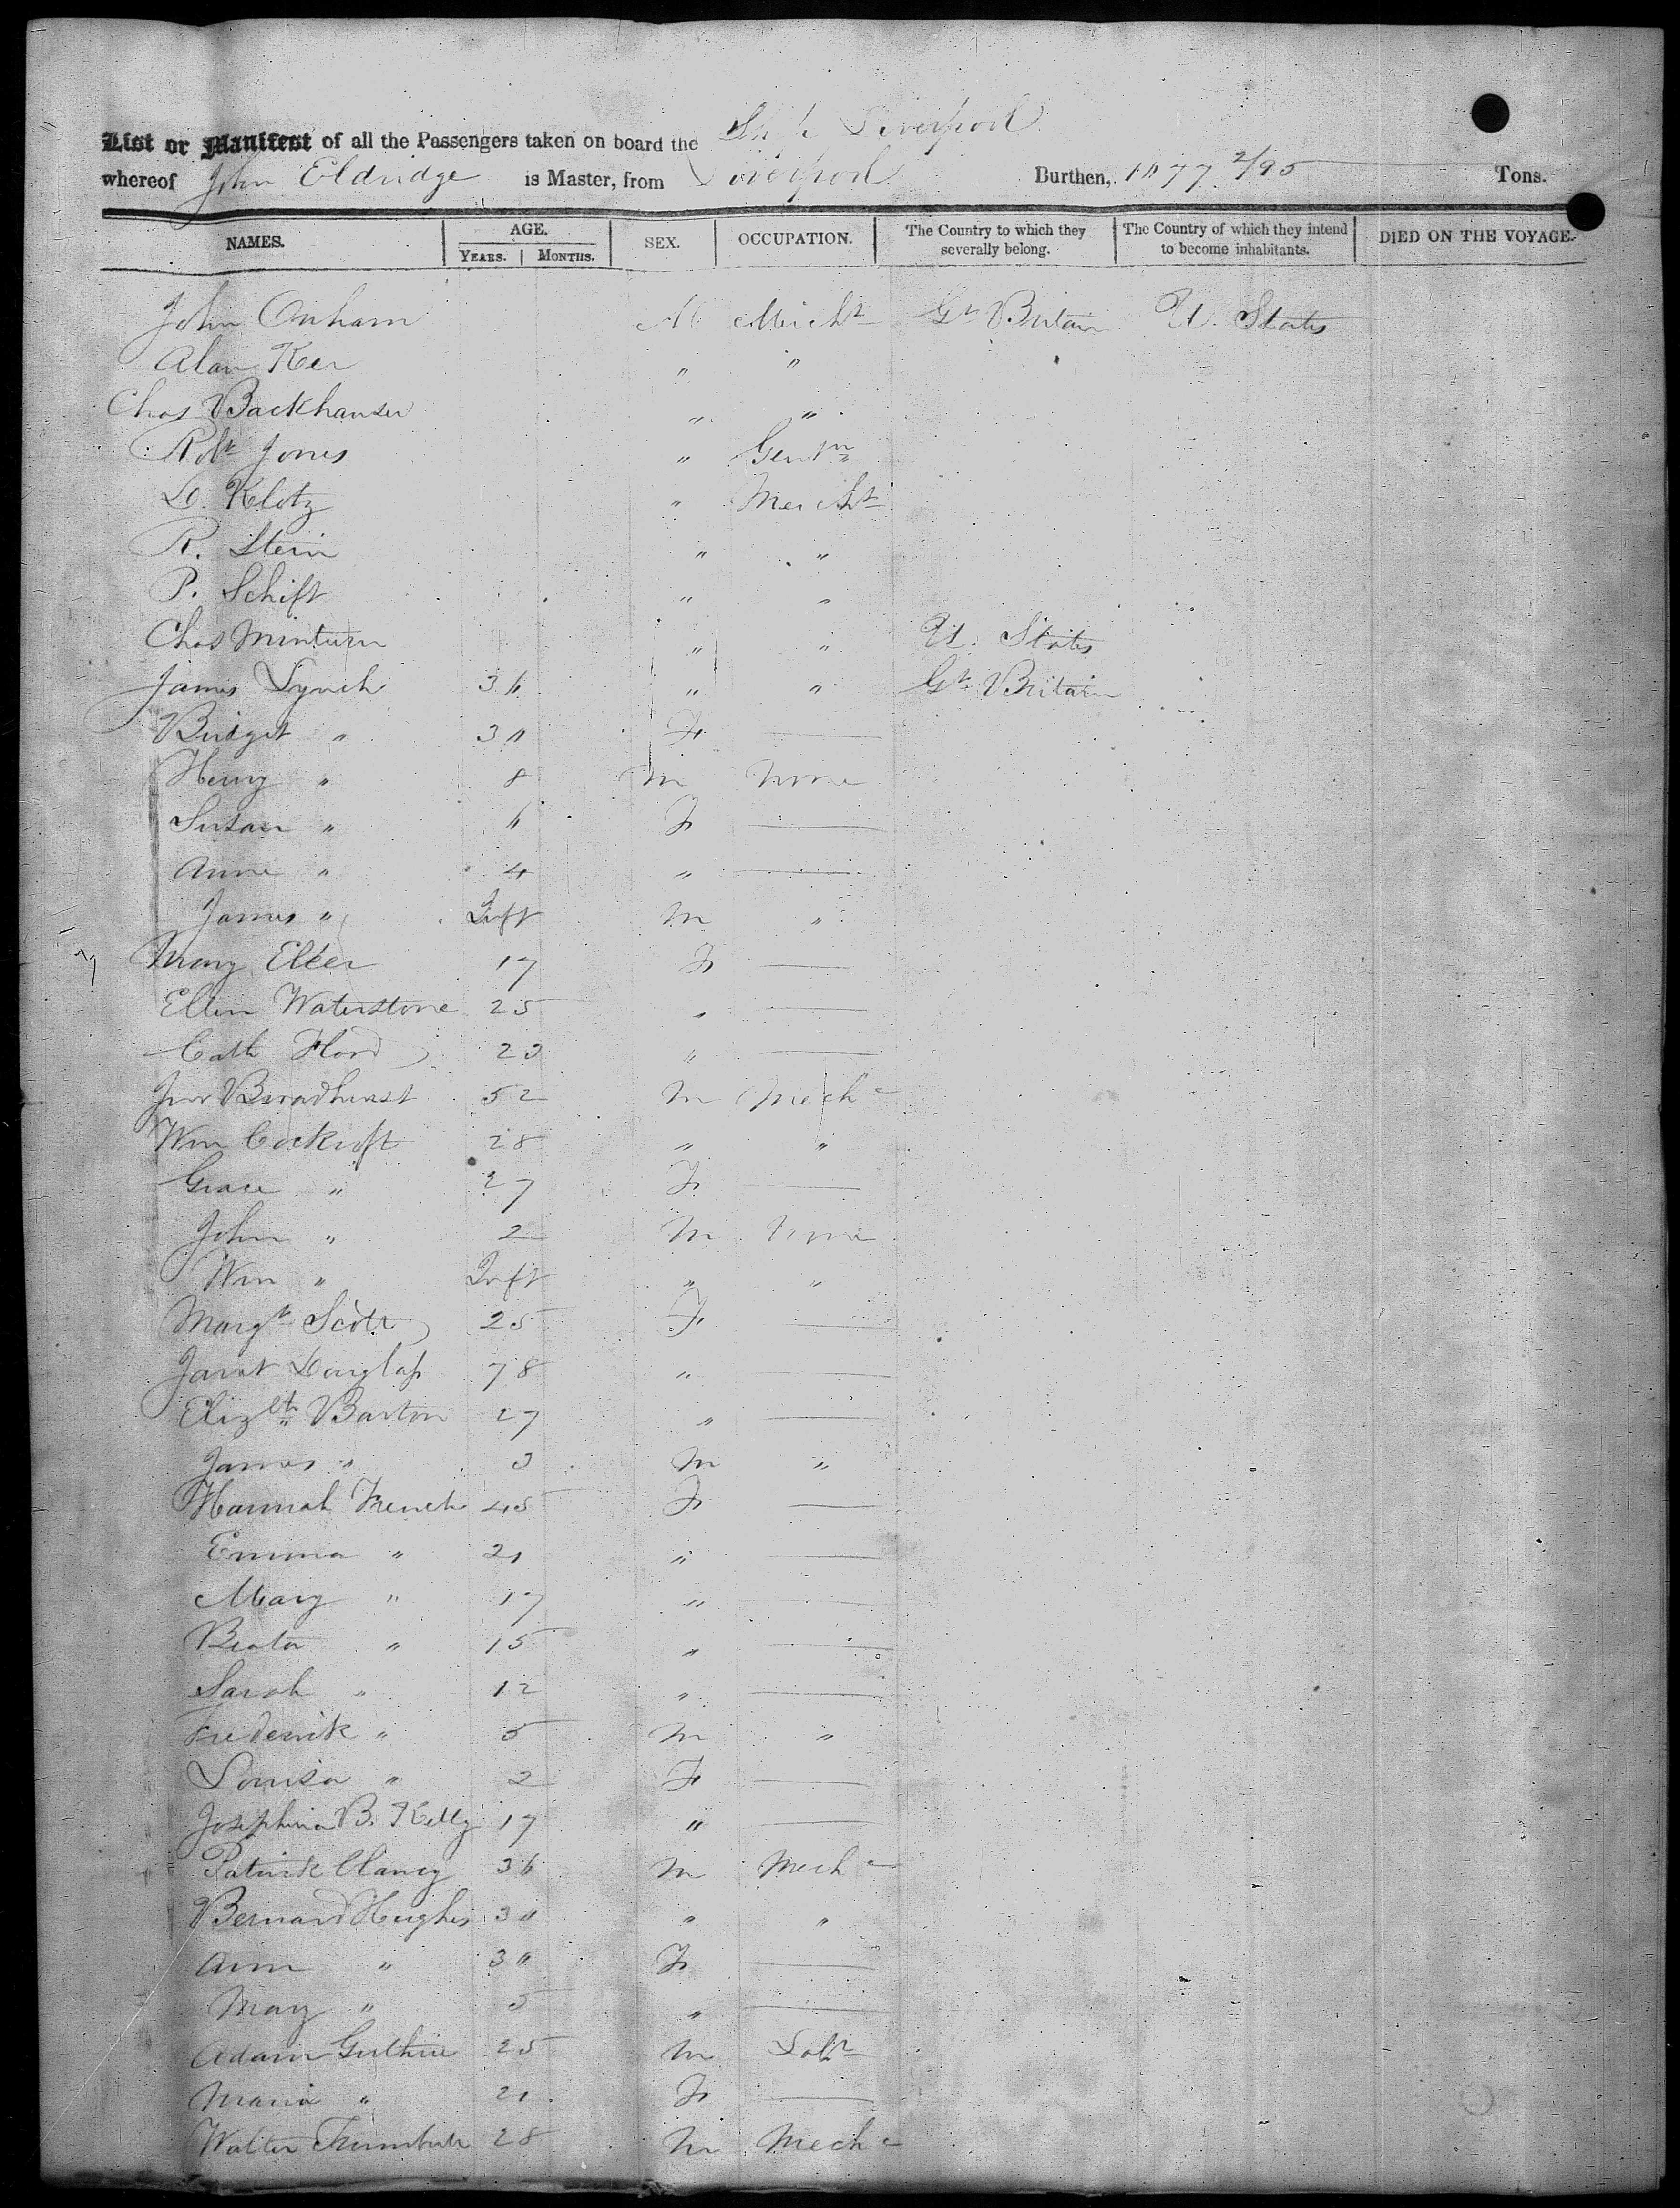 List or Manifest of all the Passengers taken on board the Ship Liverpool
whereof John Eldridge is Master, from Liverpool Burthen, 1077 2/95 Tons.
NAMES. AGE. YEARS. MONTHS. SEX. OCCUPATION. The Country to which they severally belong. The Country of which they intend to become inhabitants. DIED ON THE VOYAGE.
John M Mercht Gt Britain U. States
Alan Ker " "
Chas Backhauser " "
Robt Jones " Gentn
D. Klotz " Mercht
R. Stein " "
P. Schift " "
Chas Minturn " " U. States
James Lynch 36 " " Gt Britain
Bridget " 30 F —
Henry " 8 M None
Susan " 6 F —
Anne " 4 " —
James " Inft M "
Mary 17 F —
Ellen Waterstone 25 " —
Cath 23 " —
Jno Broadhurst 52 M Mechc
Wm Cockroft 28 " "
Grace " 27 F —
John " 2 M None
Wm " Inft " "
Margt Scott 25 F —
Janet Douglass 78 " —
Elizbth Barton 27 " —
James " 3 M "
Hannah French 45 F —
Emma " 21 " —
Mary " 17 " —
" 15 " —
Sarah " 12 " —
Frederick " 5 M "
Louisa " 2 F —
Josephina B. Kelly 17 " —
Patrick Clancy 36 M Mechc
Bernard Hughes 30 " "
Ann " 30 F —
Mary " 5 " —
Adam Guthrie 25 M Labr
Maria " 21 F —
Walter 28 M Mechc